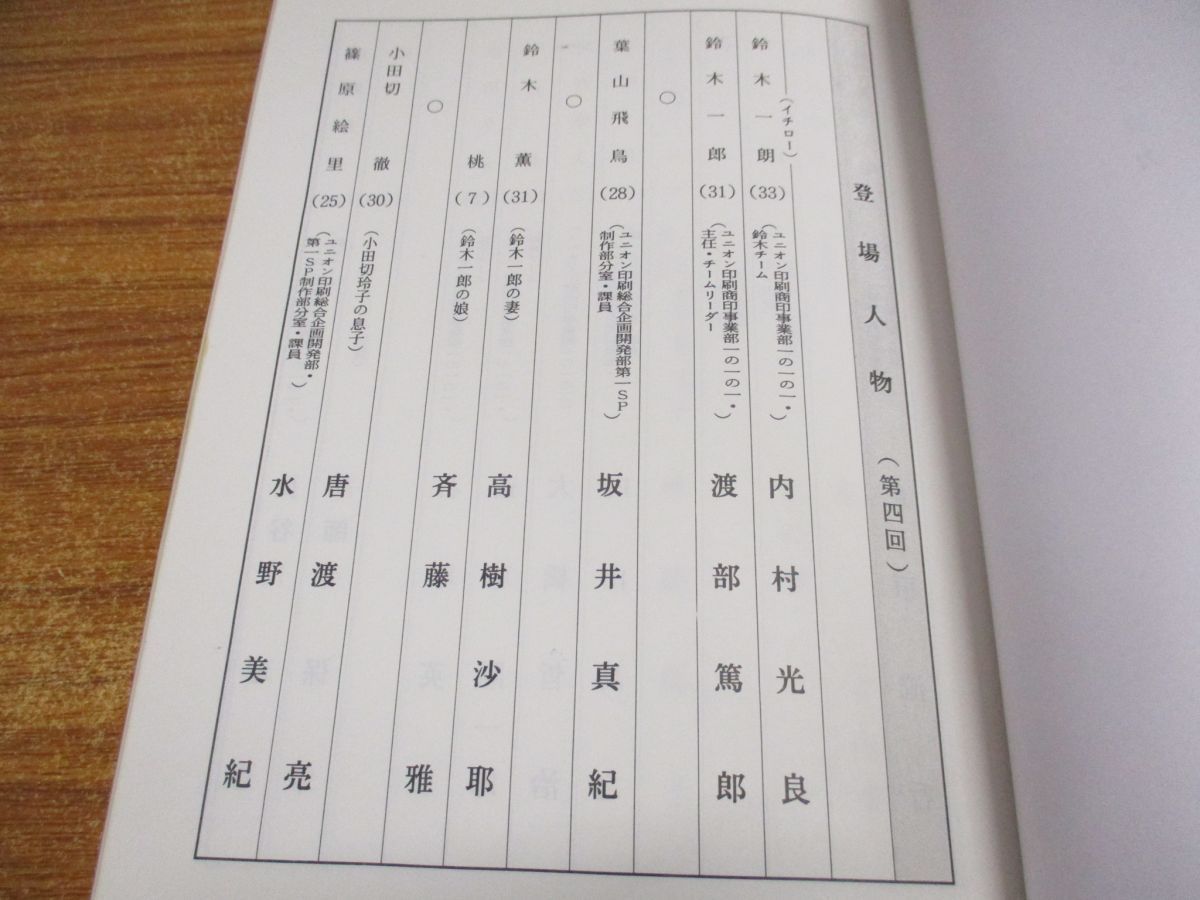 登場人物（第四回）
鈴木一朗（イチロー）(33)（ユニオン印刷商印事業部一の一の一・鈴木チーム）内村光良
鈴木一郎(31)（ユニオン印刷商印事業部一の一の一・主任・チームリーダー）渡部篤郎
○
葉山飛鳥(28)（ユニオン印刷総合企画開発部第一ＳＰ制作部分室・課員）坂井真紀
○
鈴木薫(31)（鈴木一郎の妻）高樹沙耶
桃(7)（鈴木一郎の娘）斉藤雅
○
小田切徹(30)（小田切玲子の息子）唐渡亮
篠原絵里(25)（ユニオン印刷総合企画開発部・第一ＳＰ制作部分室・課員）水野美紀